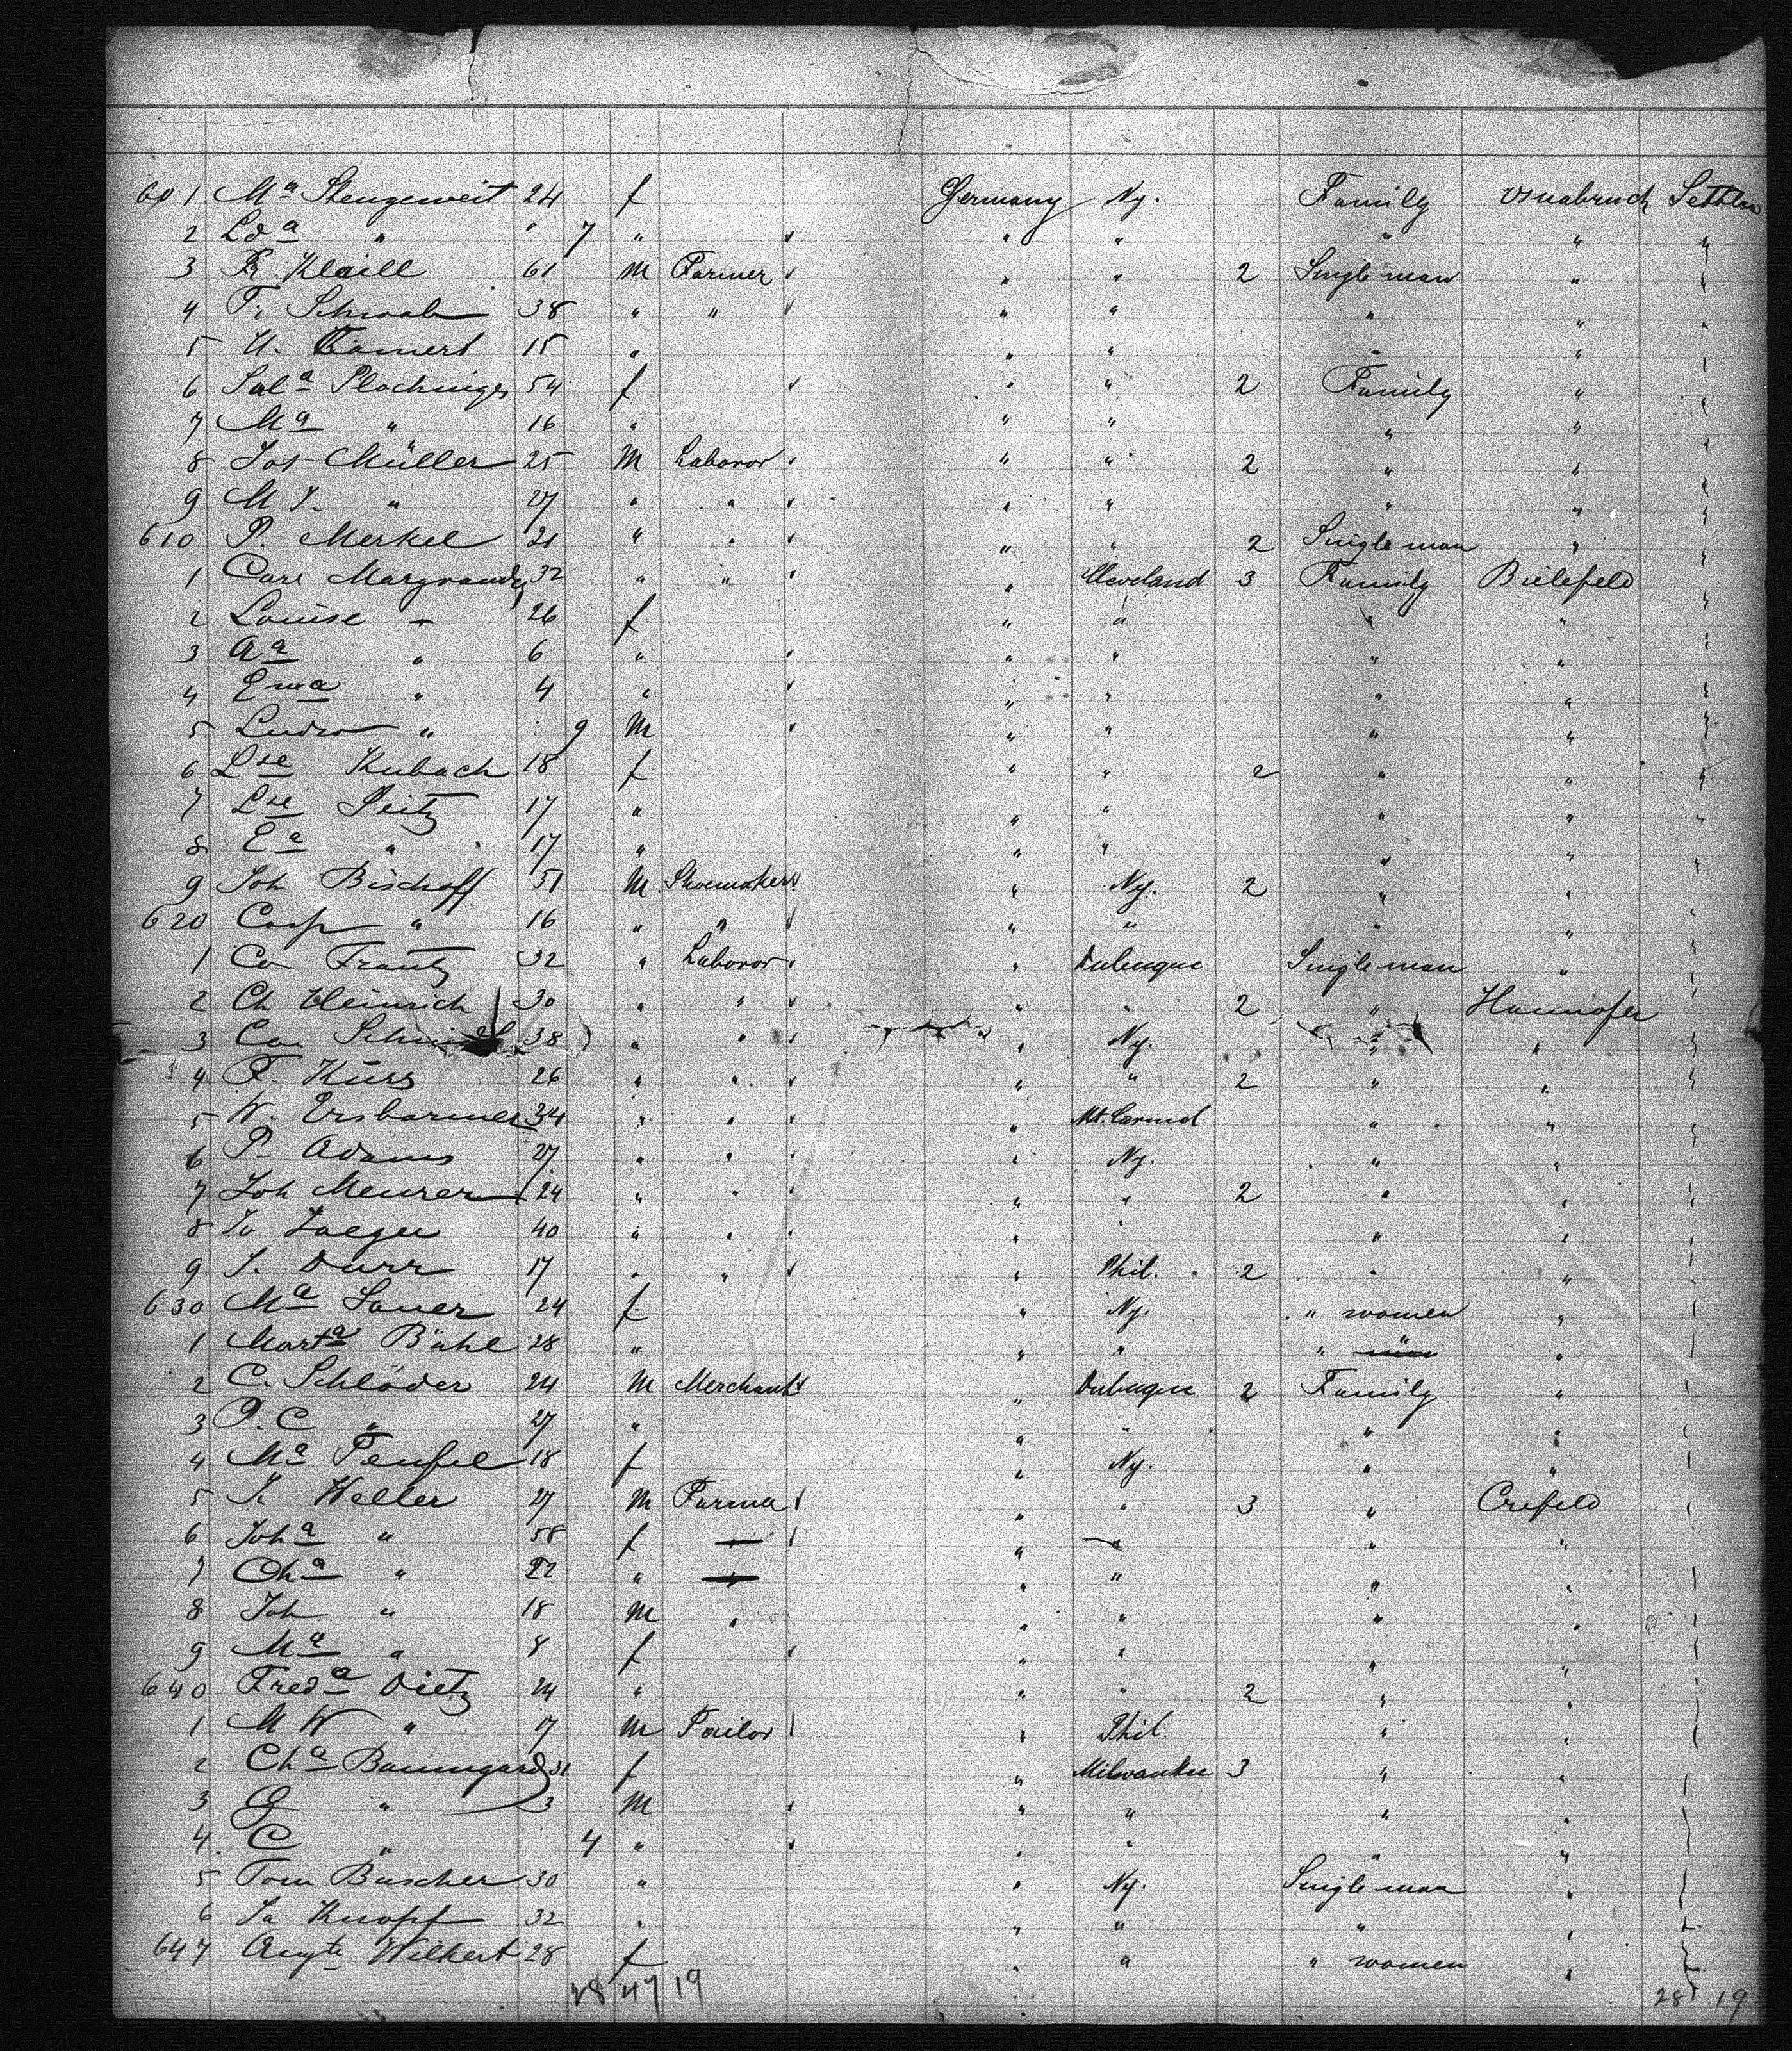 601 Ma Stengeweit 24 f Germany Ny. Family Osnabruch Settler
2 Lda " " 7 " " " " " "
3 Fr. Klaill 61 M Farmer " " 2 Single man " "
4 Fr. Schwab 38 " " " " " " "
5 U. 15 " " " " " "
6 Sala Plochinger 54 f " " 2 Family " "
7 Ma " 16 " " " " " "
8 Jos Müller 25 M Laboror " " 2 " " "
9 M J. " 27 " " " " " " "
610 P. Merkel 21 " " " " 2 Single man " "
1 Carl 32 " " " Cleveland 3 Family Bielefeld "
2 Louise " 26 f " " " " "
3 Aa " 6 " " " " " "
4 Ema " 4 " " " " " "
5 Ludw " 9 M " " " " "
6 Lse Kubach 18 f " " 2 " " "
7 Lse Peitz 17 " " " " " "
8 Ea " 17 " " " " " "
9 Joh Bischoff 51 M Shoemaker " Ny. 2 " " "
620 Casp " 16 " " " " " " "
1 Ca Frantz 32 " Laboror " Dubuque Single man " "
2 Ch Heinrich 30 " " " " 2 " Hannofer "
3 Ca 38 " " " Ny. " " "
4 F. Kürs 26 " " " " 2 " " "
5 W. Ersbarmer 34 " " " Mt. Carmel " " "
6 P. Adams 27 " " " Ny. " " "
7 Joh Meurer 24 " " " " 2 " " "
8 Jo Jaeger 40 " " " " " " "
9 J. Durr 17 " " " Phil. 2 " " "
630 Ma Sauer 24 f " Ny. " women "
1 Marta Bühl 28 " " " " " "
2 C. Schlöder 24 M Merchant " Dubuque 2 Family "
3 P. C " 27 " " " " "
4 Ma Teufel 18 f " Ny. " "
5 J. Weller 27 M Farmer " " 3 " Crefeld
6 Joha " 58 f " " " "
7 Cha " 22 " " " " "
8 Joh " 18 M " " " " "
9 Ma " 8 f " " " "
640 Freda Dietz 24 " " " 2 " "
1 M W " 17 M Tailor " Phil. " "
2 Cha Baumgard 31 f " Milwaukee 3 " "
3 G " 3 M " " " "
4 C " 4 " " " " "
5 Tom Buscher 30 " " Ny. Single man "
6 Ja Knopf 32 " " " " "
647 Augte Wilkert 28 f " " " women "
28 47 19 28 19